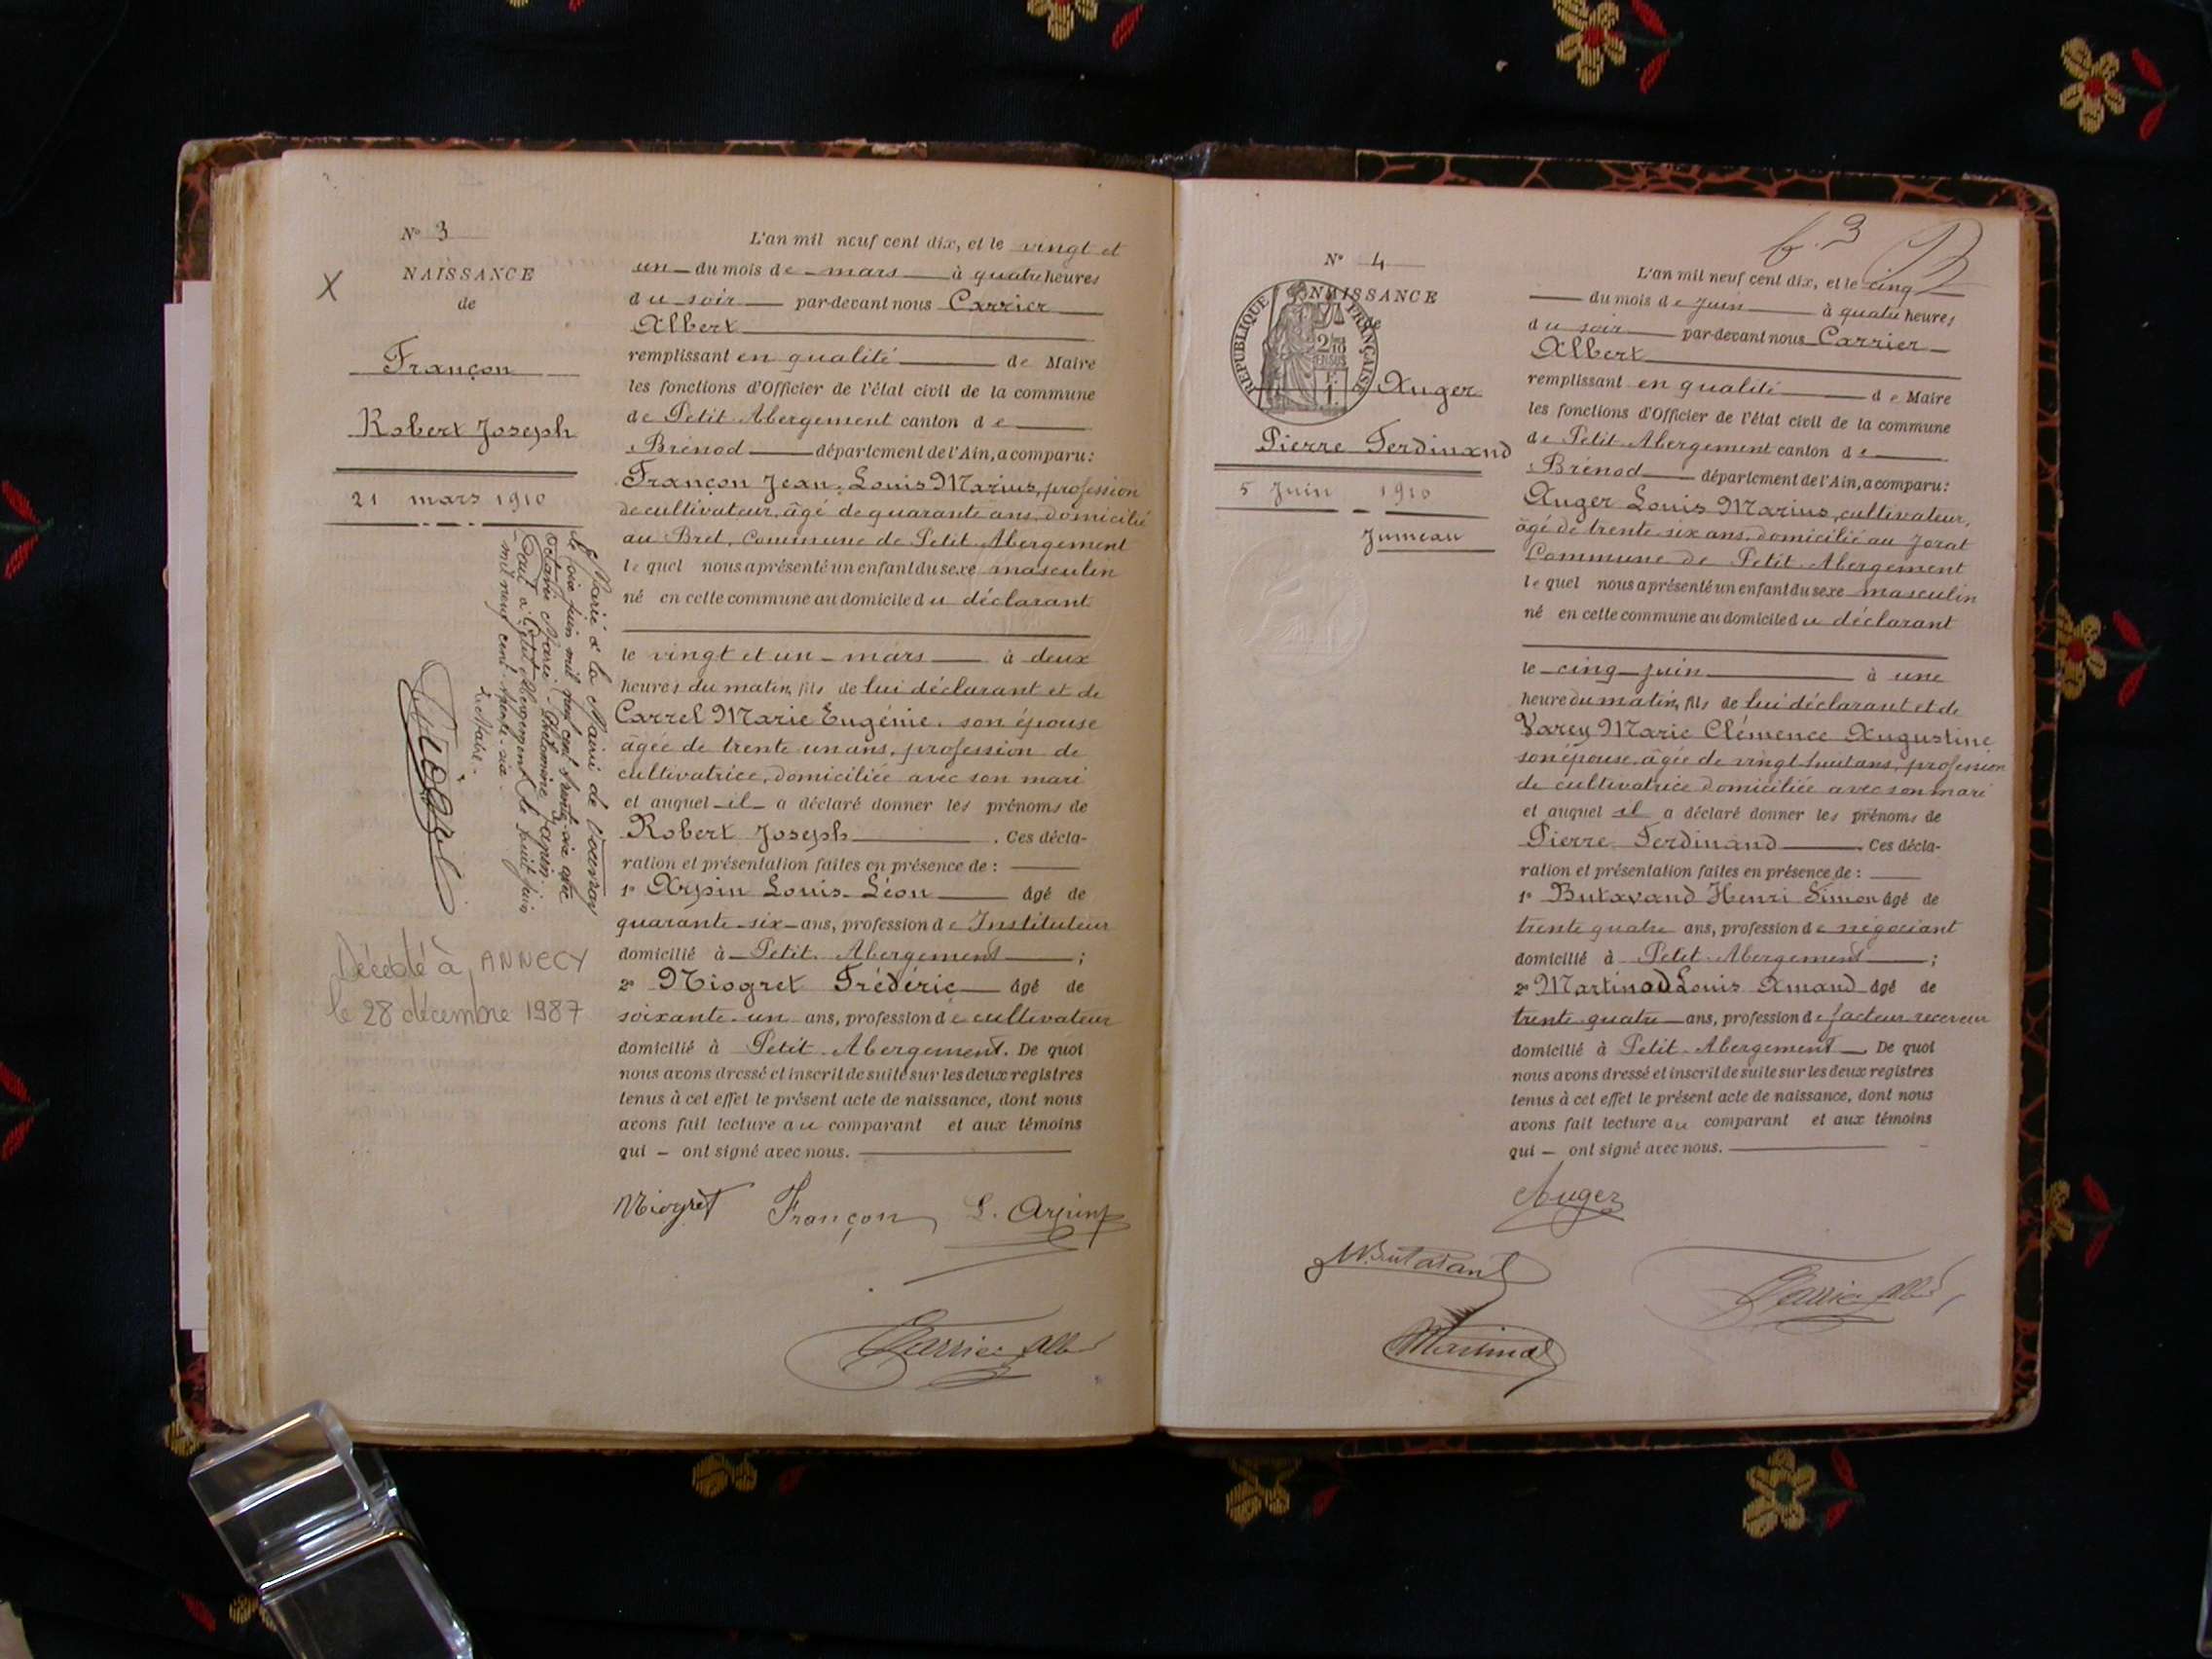 N° 3
NAISSANCE
de
Françon
Robert Joseph
21 mars 1910
Marié à la Mairie de
le six juin mil neuf cent trente-six avec
Marie Antoinine
Petit Abergement le huit juin
mil neuf cent trente-six.
Le Maire.
Décédé à ANNECY
le 28 décembre 1987
L'an mil neuf cent dix, et le vingt et
un du mois de mars à quatre heures
du soir par-devant nous Carrier
Albert
remplissant en qualité de Maire
les fonctions d'Officier de l'état civil de la commune
de Petit-Abergement canton de
Brénod département de l'Ain, a comparu:
Françon Jean-Louis Marius, profession
de cultivateur, âgé de quarante ans, domicilié
au Bret, Commune de Petit-Abergement
lequel nous a présenté un enfant du sexe masculin
né en cette commune au domicile du déclarant
le vingt et un mars à deux
heures du matin, fils de lui déclarant et de
Carrel Marie Eugénie, son épouse
âgée de trente un ans, profession de
cultivatrice, domiciliée avec son mari
et auquel il a déclaré donner les prénoms de
Robert Joseph . Ces décla-
ration et présentation faites en présence de :
1° Arpin Louis-Léon âgé de
quarante-six ans, profession de Instituteur
domicilié à Petit-Abergement ;
2° Miogret Frédéric âgé de
soixante-un ans, profession de cultivateur
domicilié à Petit-Abergement. De quoi
nous avons dressé et inscrit de suite sur les deux registres
tenus à cet effet le présent acte de naissance, dont nous
avons fait lecture au comparant et aux témoins
qui – ont signé avec nous.
Miogret Françon L. Arpin
Carrier Albert
f. 3
N° 4
NAISSANCE
de
RÉPUBLIQUE FRANÇAISE
Auger
Pierre Ferdinand
5 Juin 1910
Jumeau
L'an mil neuf cent dix, et le cinq
du mois de Juin à quatre heures
du soir par-devant nous Carrier
Albert
remplissant en qualité de Maire
les fonctions d'Officier de l'état civil de la commune
de Petit-Abergement canton de
Brénod département de l'Ain, a comparu:
Auger Louis Marius, cultivateur,
âgé de trente-six ans, domicilié au Jorat
Commune de Petit-Abergement
lequel nous a présenté un enfant du sexe masculin
né en cette commune au domicile du déclarant
le cinq juin à une
heure du matin, fils de lui déclarant et de
Varey Marie Clémence Augustine
son épouse, âgée de vingt-huit ans, profession
de cultivatrice domiciliée avec son mari
et auquel il a déclaré donner les prénoms de
Pierre Ferdinand . Ces décla-
ration et présentation faites en présence de :
1° Butavand Henri Simon âgé de
trente quatre ans, profession de négociant
domicilié à Petit-Abergement ;
2° Martinod Louis Amand âgé de
trente-quatre ans, profession de facteur receveur
domicilié à Petit-Abergement De quoi
nous avons dressé et inscrit de suite sur les deux registres
tenus à cet effet le présent acte de naissance, dont nous
avons fait lecture au comparant et aux témoins
qui – ont signé avec nous.
Auger
Butavand
Carrier Albert
Martinod